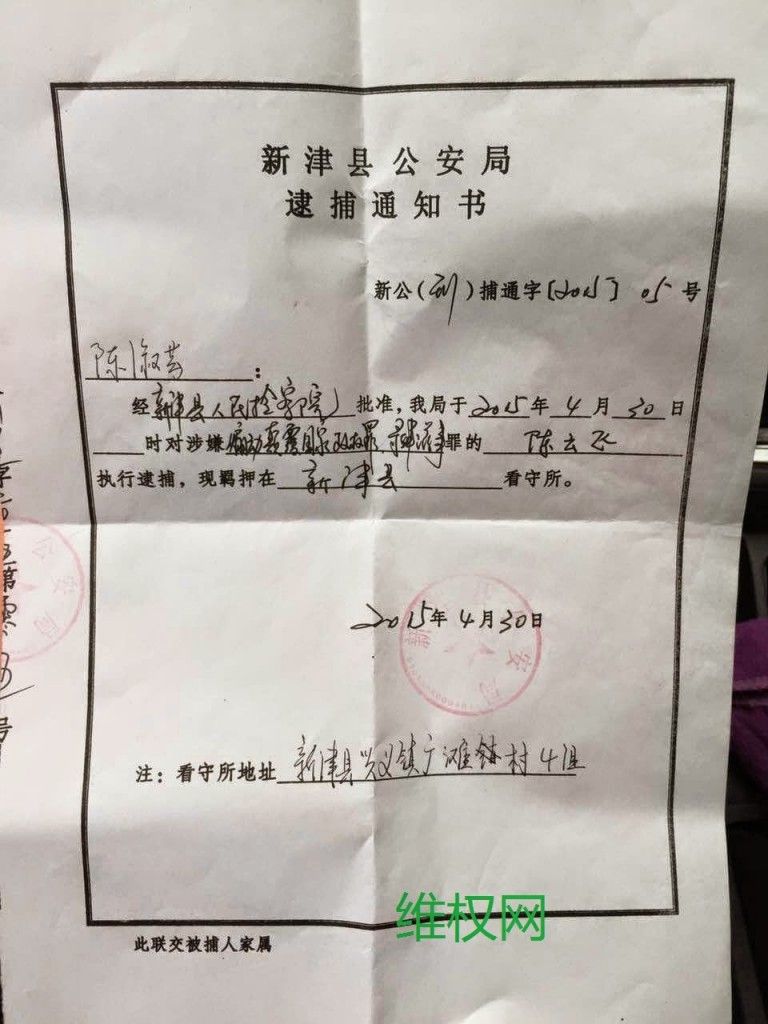 新津县公安局
逮捕通知书
新公(刑)捕通字[2015] 05号
陈淑芸:
经新津县人民检察院批准,我局于2015年4月30日
时对涉嫌煽动颠覆国家政权罪、寻衅滋事罪的陈云飞
执行逮捕,现羁押在新津县看守所。
2015年4月30日
注:看守所地址新津县兴义镇广滩村4组
此联交被捕人家属
维权网